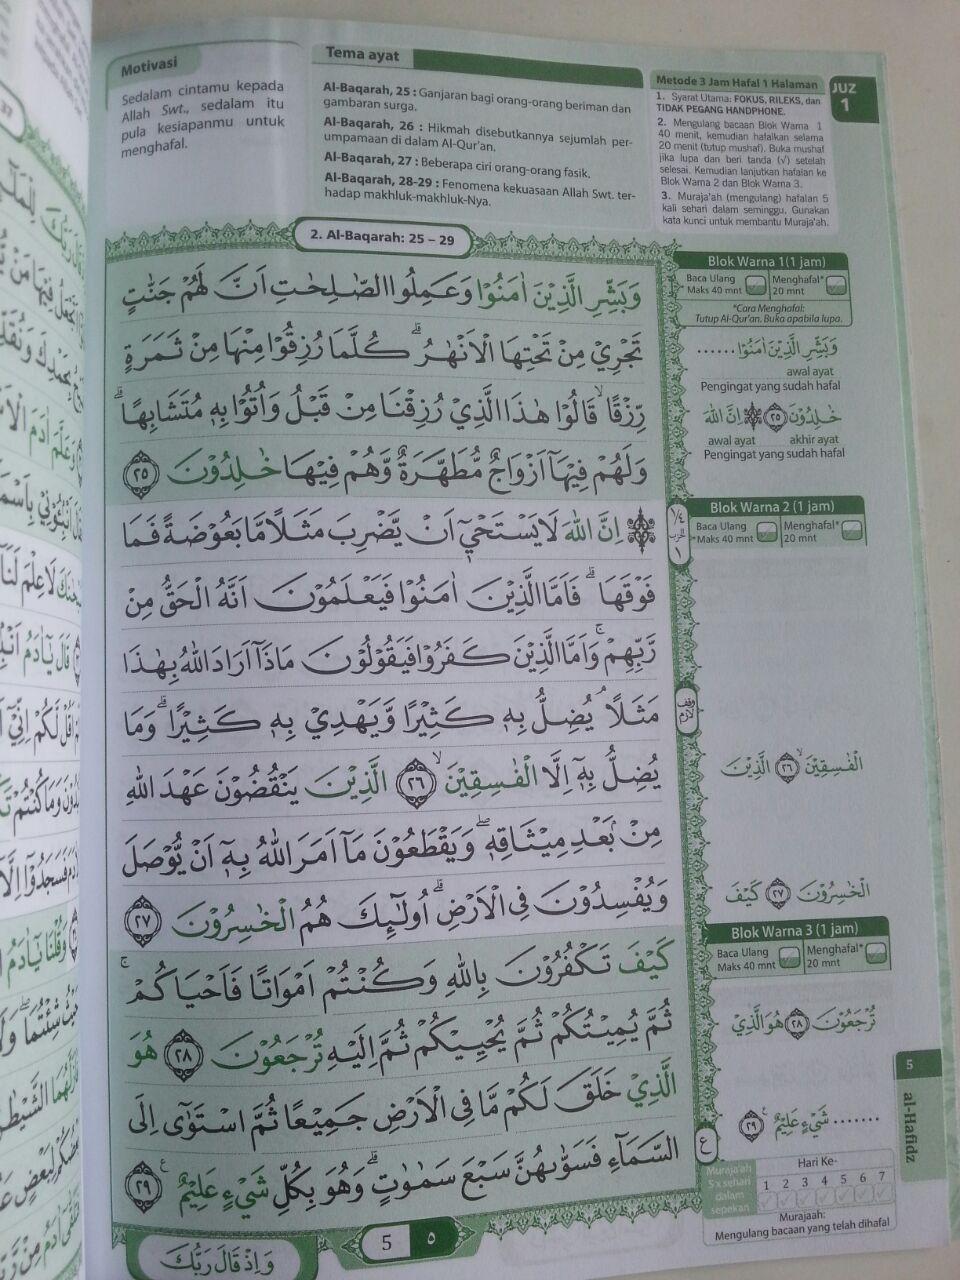 Motivasi
Sedalam cintamu kepada
Allah Swt., sedalam itu
pula kesiapanmu untuk
menghafal.
Tema ayat
Al-Baqarah, 25 : Ganjaran bagi orang-orang beriman dan
gambaran surga.
Al-Baqarah, 26 : Hikmah disebutkannya sejumlah per-
umpamaan di dalam Al-Qur'an.
Al-Baqarah, 27 : Beberapa ciri orang-orang fasik.
Al-Baqarah, 28-29 : Fenomena kekuasaan Allah Swt. ter-
hadap makhluk-makhluk-Nya.
Metode 3 Jam Hafal 1 Halaman
1. Syarat Utama: FOKUS, RILEKS, dan
TIDAK PEGANG HANDPHONE.
2. Mengulang bacaan Blok Warna 1
40 menit, kemudian hafalkan selama
20 menit (tutup mushaf). Buka mushaf
jika lupa dan beri tanda (√) setelah
selesai. Kemudian lanjutkan hafalan ke
Blok Warna 2 dan Blok Warna 3.
3. Muraja'ah (mengulang) hafalan 5
kali sehari dalam seminggu. Gunakan
kata kunci untuk membantu Muraja'ah.
JUZ
1
2. Al-Baqarah: 25 – 29
وَبَشِّرِ الَّذِيْنَ اٰمَنُوْا وَعَمِلُوا الصّٰلِحٰتِ اَنَّ لَهُمْ جَنّٰتٍ
تَجْرِيْ مِنْ تَحْتِهَا الْاَنْهٰرُ ۗ كُلَّمَا رُزِقُوْا مِنْهَا مِنْ ثَمَرَةٍ
رِّزْقًا ۙ قَالُوْا هٰذَا الَّذِيْ رُزِقْنَا مِنْ قَبْلُ وَاُتُوْا بِهٖ مُتَشَابِهًا ۗ
وَلَهُمْ فِيْهَآ اَزْوَاجٌ مُّطَهَّرَةٌ وَّهُمْ فِيْهَا خٰلِدُوْنَ ٢٥
۞ اِنَّ اللّٰهَ لَا يَسْتَحْيٖٓ اَنْ يَّضْرِبَ مَثَلًا مَّا بَعُوْضَةً فَمَا
فَوْقَهَا ۗ فَاَمَّا الَّذِيْنَ اٰمَنُوْا فَيَعْلَمُوْنَ اَنَّهُ الْحَقُّ مِنْ
رَّبِّهِمْ ۚ وَاَمَّا الَّذِيْنَ كَفَرُوْا فَيَقُوْلُوْنَ مَاذَآ اَرَادَ اللّٰهُ بِهٰذَا
مَثَلًا ۘ يُضِلُّ بِهٖ كَثِيْرًا وَّيَهْدِيْ بِهٖ كَثِيْرًا ۗ وَمَا
يُضِلُّ بِهٖٓ اِلَّا الْفٰسِقِيْنَ ۙ ٢٦ الَّذِيْنَ يَنْقُضُوْنَ عَهْدَ اللّٰهِ
مِنْۢ بَعْدِ مِيْثَاقِهٖ ۖ وَيَقْطَعُوْنَ مَآ اَمَرَ اللّٰهُ بِهٖٓ اَنْ يُّوْصَلَ
وَيُفْسِدُوْنَ فِى الْاَرْضِ ۗ اُولٰۤىِٕكَ هُمُ الْخٰسِرُوْنَ ٢٧
كَيْفَ تَكْفُرُوْنَ بِاللّٰهِ وَكُنْتُمْ اَمْوَاتًا فَاَحْيَاكُمْ ۚ
ثُمَّ يُمِيْتُكُمْ ثُمَّ يُحْيِيْكُمْ ثُمَّ اِلَيْهِ تُرْجَعُوْنَ ٢٨ هُوَ
الَّذِيْ خَلَقَ لَكُمْ مَّا فِى الْاَرْضِ جَمِيْعًا ثُمَّ اسْتَوٰٓى اِلَى
السَّمَاۤءِ فَسَوّٰىهُنَّ سَبْعَ سَمٰوٰتٍ ۗ وَهُوَ بِكُلِّ شَيْءٍ عَلِيْمٌ ࣖ ٢٩
وَاِذْ قَالَ رَبُّكَ
5 ٥
Blok Warna 1 (1 jam)
Baca Ulang
Maks 40 mnt
Menghafal*
20 mnt
*Cara Menghafal:
Tutup Al-Qur'an. Buka apabila lupa.
وَبَشِّرِ الَّذِيْنَ اٰمَنُوْا ......
awal ayat
Pengingat yang sudah hafal
خٰلِدُوْنَ ٢٥ ۞ اِنَّ اللّٰهَ
awal ayat akhir ayat
Pengingat yang sudah hafal
Blok Warna 2 (1 jam)
Baca Ulang
*Maks 40 mnt
Menghafal*
20 mnt
الْفٰسِقِيْنَ ۙ ٢٦ الَّذِيْنَ
الْخٰسِرُوْنَ ٢٧ كَيْفَ
Blok Warna 3 (1 jam)
Baca Ulang
Maks 40 mnt
Menghafal*
20 mnt
تُرْجَعُوْنَ ٢٨ هُوَ الَّذِيْ
....... شَيْءٍ عَلِيْمٌ ࣖ ٢٩
5
al-Hafidz
Muraja'ah
5 x sehari
dalam
sepekan
Hari Ke-
1 2 3 4 5 6 7
Murajaah:
Mengulang bacaan yang telah dihafal